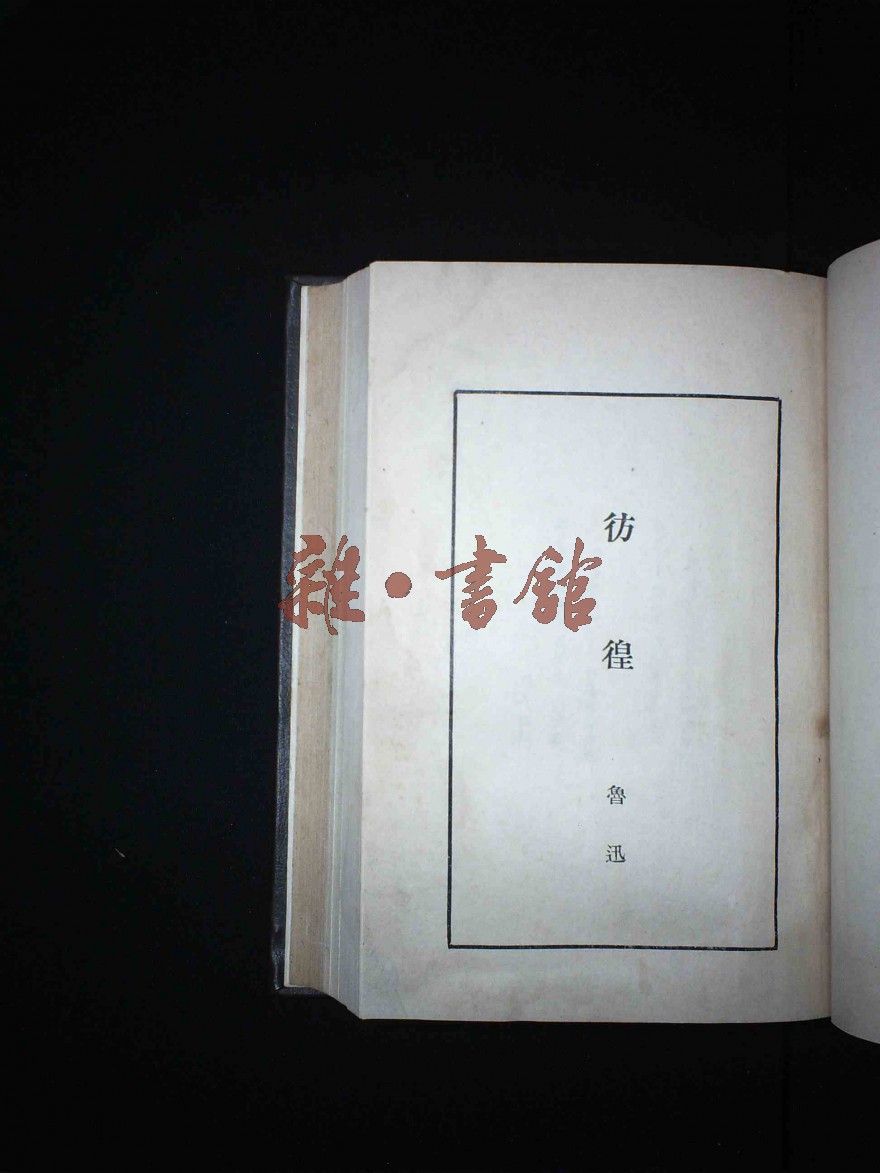 彷徨
魯迅
雜·書館